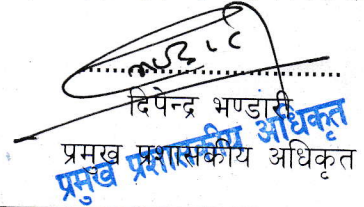 दिपेन्द्र भण्डारी
प्रमुख प्रशासकीय अधिकृत
प्रमुख प्रशासकीय अधिकृत